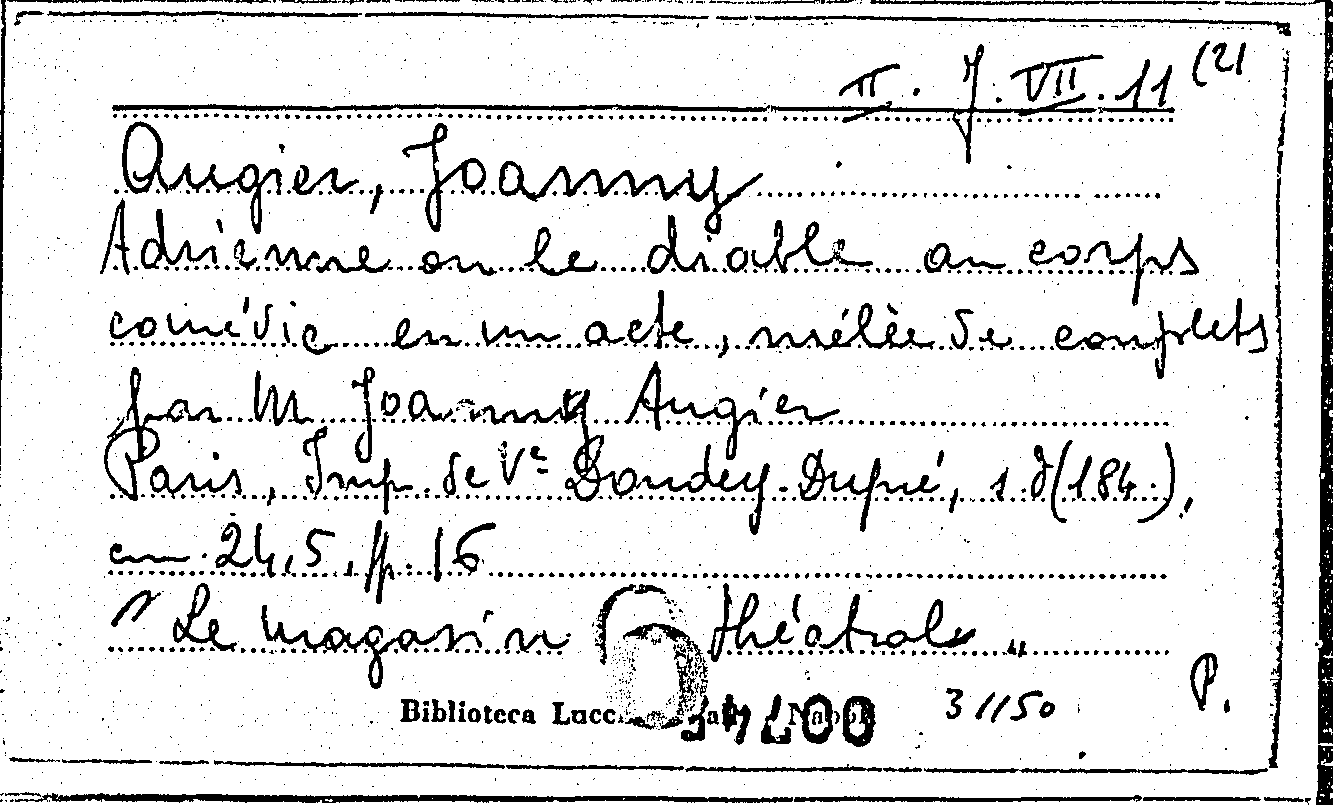 II. J. VII. 11 (2)
Augier, Joanny
Adrienne ou le diable au corps
comédie en un acte, mêlée de couplets
par M Joanny Augier
Paris, Imp. de Ve Dondey-Dupré, s.d (184.),
cm. 24,5, pp. 16
" Le magasin théatral "
P.
Biblioteca 31150